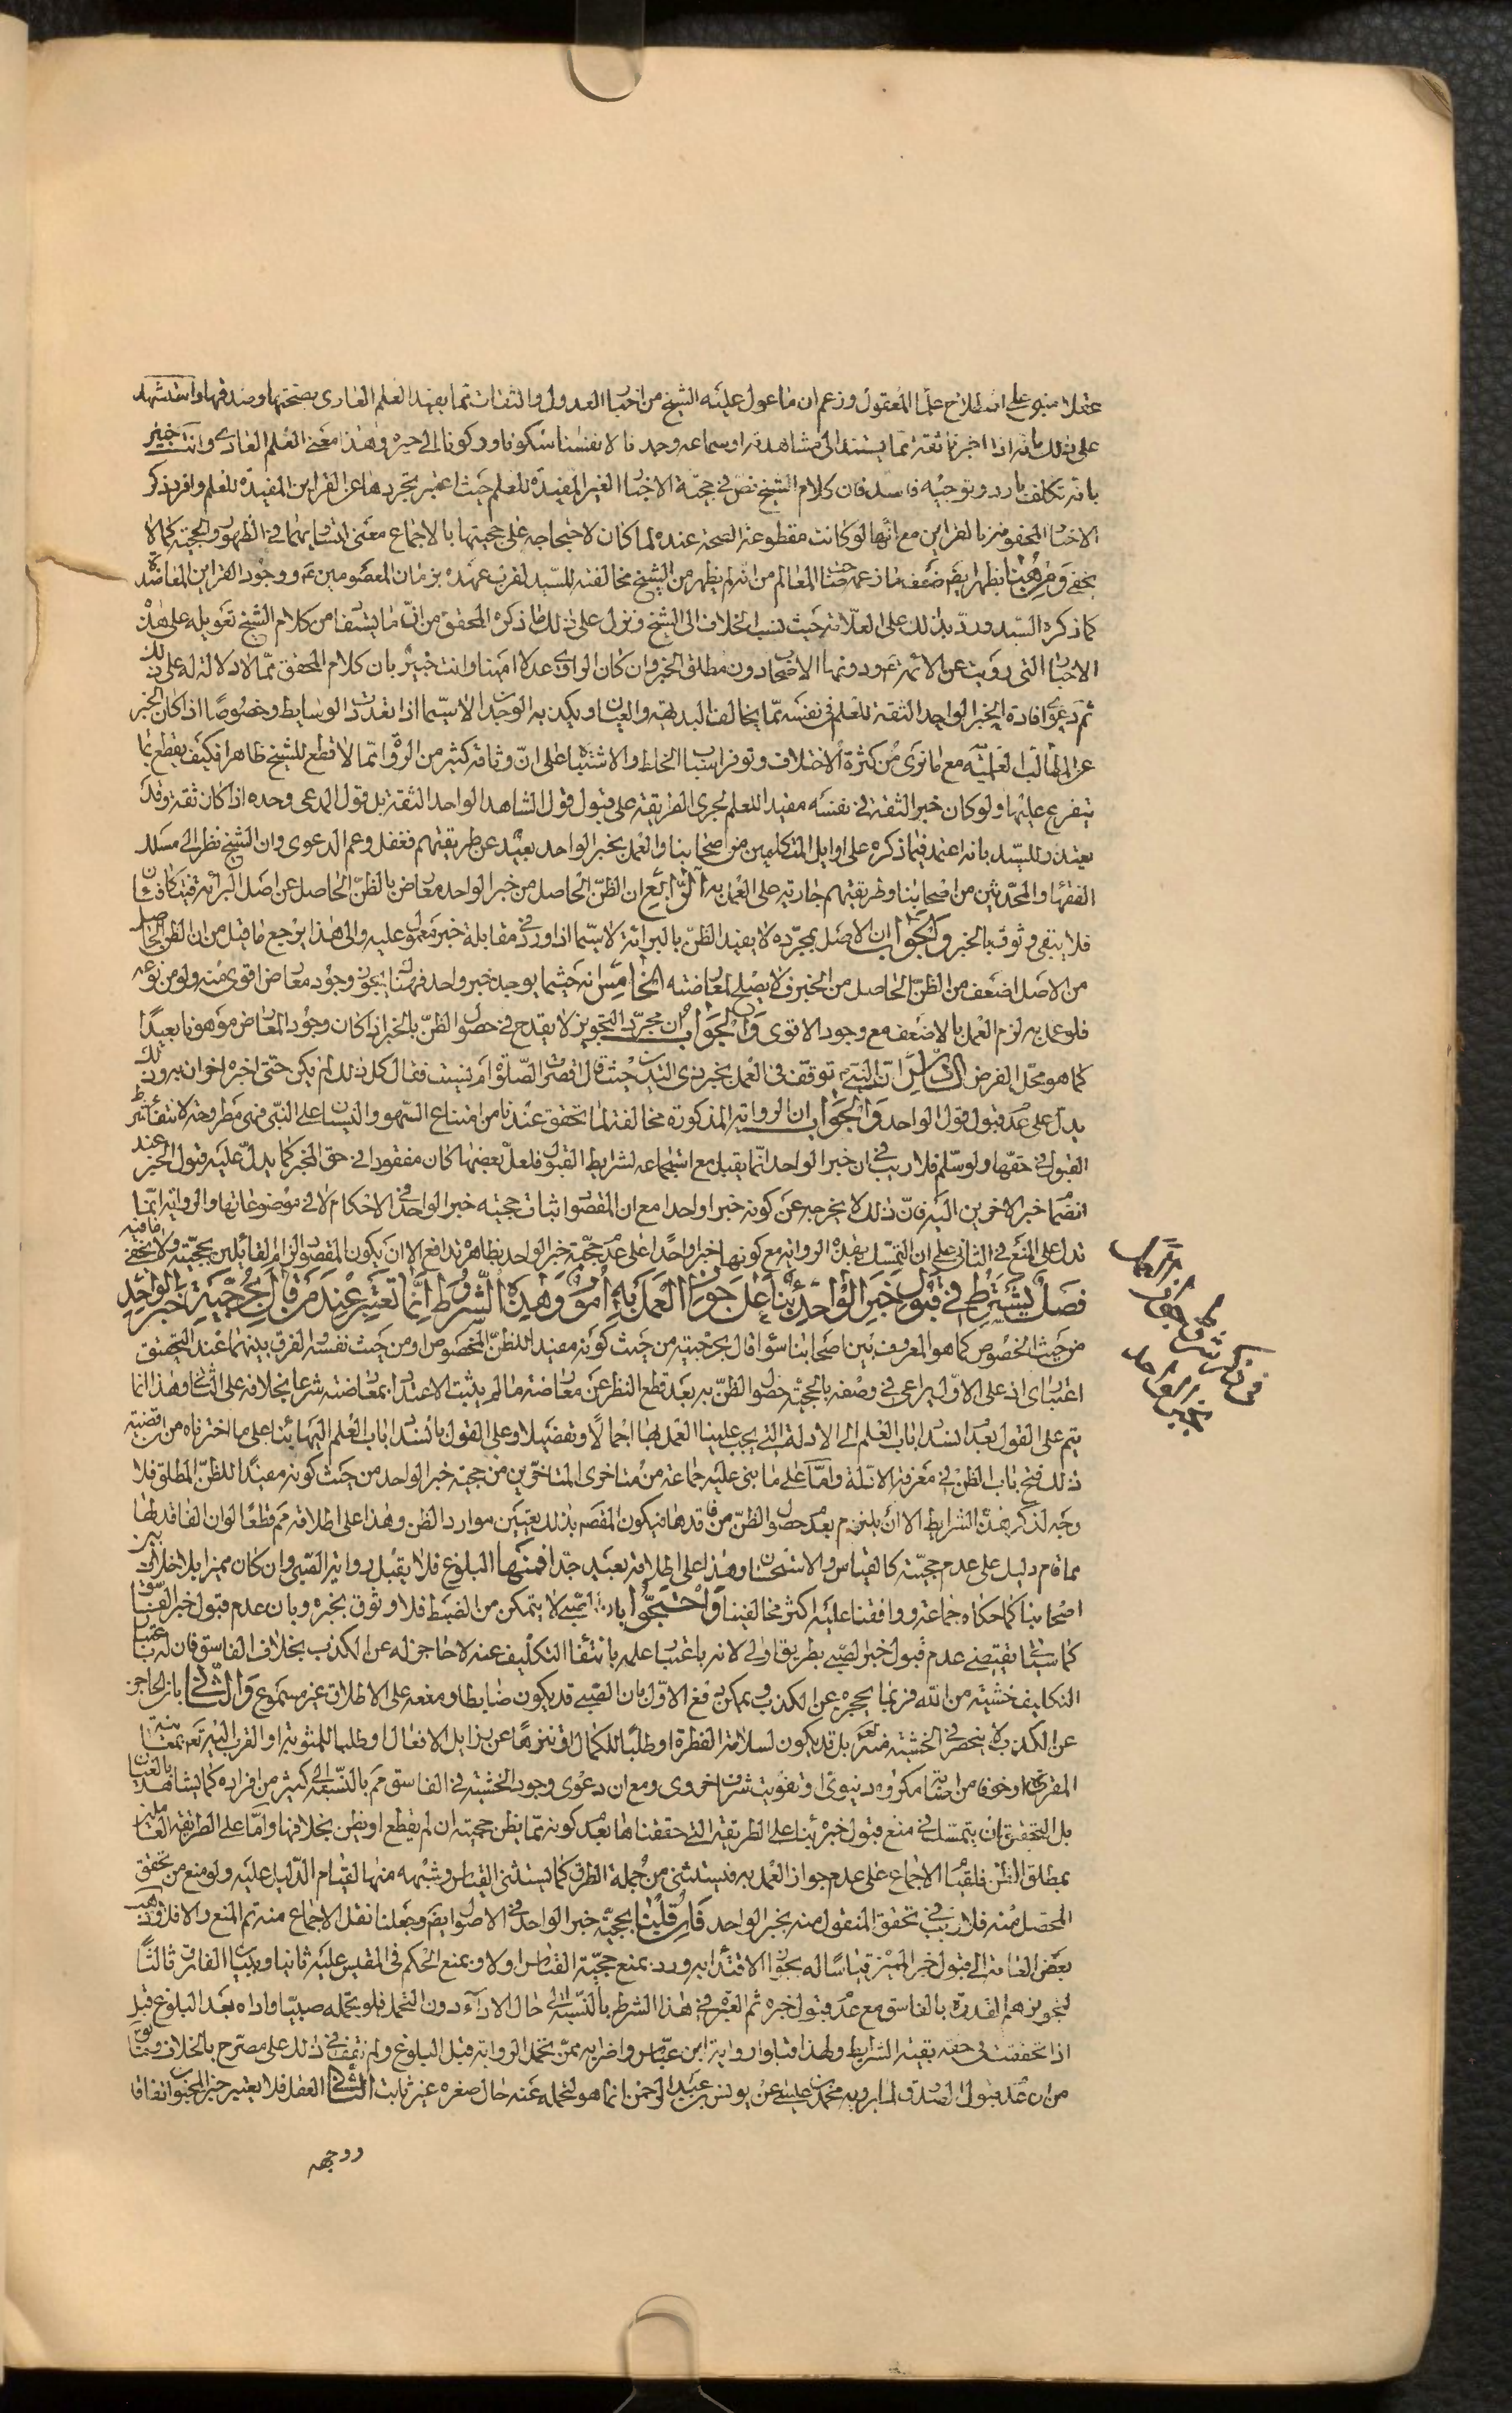 على ذلك بانه اذا اخبرنا ثقة بما يستند الى مشاهدته او سماعه وجد نا لانفسنا سكونا وركونا الى خبره وهذا معنى العلم العادى وانت خبير
بانه تكلف بارد وتوجيه فاسد فان كلام الشيخ نص فى حجية الاخبار الغير المفيدة للعلم حيث اعتبر تجردها عن القراين المفيدة للعلم وافرد ذكر
الاخبار المحفوفة بالقراين مع انها لو كانت مقطوعة الصحة عنده لما كان لاحتجاجه على حجيتها بالاجماع معنى لتساويهما فى الظهور والحجية كما لا
يخفى ومن هنا يظهر ايضا ضعف ما زعمه صاحب المعالم من انه لم يظهر من الشيخ مخالفته للسيد لقرب عهده بزمان المعصومين ع ووجود القراين المعاضدة
كما ذكره السيد ورد بذلك على العلامة حيث نسب الخلاف الى الشيخ ونزل على ذلك ما ذكره المحقق من ان ما يستفاد من كلام الشيخ تعويله على هذه
الاخبار التى رويت عن الائمة ع ودونها الاصحاب دون مطلق الخبر وان كان الراوى عدلا اماميا وانت خبير بان كلام المحقق مما لا دلالة له على ذلك
ثم دعوى افادة الخبر الواحد الثقة للعلم فى نفسه مما يخالف البديهة والعيان ويكذبه الوجدان لا سيما اذا تعددت الوسايط وخصوصا اذا كان الخبر
عن المطالب العلمية مع ما نرى من كثرة الاختلاف وتوفر اسباب الخطاء والاشتباه على ان وثاقة كثير من الرواة مما لا قطع للشيخ ظاهرا فكيف يقطع بما
يتفرع عليها ولو كان خبر الثقة فى نفسه مفيدا للعلم لجرى الطريقة على قبول قول الشاهد الواحد الثقة بل قول المدعى وحده اذا كان ثقة وقد
يعتذر للسيد بانه اعتمد فيما ذكره على اوايل المتكلمين من اصحابنا والعمل بخبر الواحد بعيد عن طريقتهم فغفل وعم الدعوى وان الشيخ نظر الى مسلك
الفقهاء والمحدثين من اصحابنا وطريقتهم جارية على العمل به الرابع ان الظن الحاصل من خبر الواحد معارض بالظن الحاصل عن اصل البرائة فيتكافئان
فلا يبقى وثوق بالخبر والجواب ان الاصل بمجرده لا يفيد الظن بالبرائة لا سيما اذا ورد فى مقابلة خبر معمول عليه والى هذا يرجع ما قيل من ان الظن الحاصل
من الاصل اضعف من الظن الحاصل من الخبر فلا يصلح لمعارضته الخامس انه حيثما يوجد خبر واحد فهناك يتجوز وجود معارض اقوى منه ولو من نوعه
فلو عمل به لزم العمل بالاضعف مع وجود الاقوى والجواب ان مجرد التجويز لا يقدح فى حصول الظن بالخبر اذا كان وجود المعارض موهونا بعيدا
كما هو محل الفرض السادس ان النبى ص توقف فى العمل بخبر ذى اليدين حيث قال اقصرت الصلوة ام نسيت فقال كل ذلك لم يكن حتى اخبره اخوان به وذلك
يدل على عدم قبول قول الواحد والجواب ان الرواية المذكورة مخالفة لما تحقق عندنا من امتناع السهو والنسيان على النبى فهى مطروحة لانتفاء شرط
القبول فى حقها ولو سلم فلا ريب فى ان خبر الواحد انما يقبل مع استجماعه لشرايط القبول فلعل بعضها كان مفقودا فى حق المخبر كما يدل عليه قبول الخبر عند
انضمام خبر الاخرين اليه فان ذلك لا يخرجه عن كونه خبرا واحدا مع ان المقصود اثبات حجية خبر الواحد فى الاحكام لا فى موضوعاتها والرواية انما
تدل على المنع فى الثانى على ان التمسك بهذه الرواية مع كونها خبرا واحدا على عدم حجية خبر الواحد بظاهره تدافع الا ان يكون المقصود الزام القائلين بحجيته ولا يخفى ما فيه
فصل يشترط فى قبول خبر الواحد بناء على جواز العمل به امور وهذه الشروط انما تعتبر عند من قال بحجية خبر الواحد
من حيث الخصوص كما هو المعروف بين اصحابنا سواء قال بحجيته من حيث كونه مفيدا للظن المخصوص او من حيث نفسه الفرق بينهما عند التحقيق
اعتبارى اذ على الاول يراعى فى وصفه بالحجية حصول الظن به بعد قطع النظر عن معارضة ما لم يثبت الاعتداد بمعارضته شرعا بخلافه على الثانى وهذا انما
يتم على القول بعد انسداد باب العلم الى الادلة التى يجب علينا العمل بها اجمالا وتفصيلا وعلى القول بانسداد باب العلم اليها بناء على ما اخترناه من ان قضية
ذلك فتح باب الظن فى معرفة الادلة واما على ما بنى عليه جماعة من متاخرى المتاخرين من حجية خبر الواحد من حيث كونه مفيدا للظن المطلق فلا
وجه لذكر هذه الشرايط الا ان يلتزم بعدم حصول الظن من فاقدها فيكون المقصود بذلك تعيين موارد الظن وهذا على اطلاقه مم قطعا او ان الفاقد لها
مما قام دليل على عدم حجيته كالقياس والاستحسان وهذا على اطلاقه بعيد جدا فمنها البلوغ فلا يقبل رواية الصبى وان كان مميزا بلا خلاف بين
اصحابنا كما حكاه جماعة ووافقنا عليه اكثر مخالفينا واحتجوا بان الصبى لا يتمكن من الضبط فلا وثوق بخبره وبان عدم قبول خبر الفساق
كما سياتى يقتضى عدم قبول خبر الصبى بطريق اولى لانه باعتبار علمه بانتفاء التكليف عنه لا حاجز له عن الكذب بخلاف الفاسق فان له باعتبار
التكليف خشية من الله فربما يحجزه عن الكذب ويمكن دفع الاول بان الصبى قد يكون ضابطا ومنعه على الاطلاق غير مسموع والثانى بان الحاجز
عن الكذب لا ينحصر فى الخشية منه تعالى بل قد يكون لسلامة الفطرة او طلبا للكمال او تنزها عن رذايل الافعال او طلبا للمثوبة او القرب اليه تعالى
بل التحقيق ان يتمسك فى منع قبول خبره بناء على الطريقة التى حققناها بعدم كونه مما يظن حجيته ان لم يقطع او يظن بخلافها واما على الطريقة
بمطلق الظن فلقيام الاجماع على عدم جواز العمل به فيستثنى من جملة الطرق كما يستثنى القياس وشبهه منها لقيام الدليل عليه ولو منع من تحقق
المحصل منه فلا ريب فى تحقق المنقول منه بخبر الواحد فان قلنا بحجية خبر الواحد فى الاصول ايضا وجعلنا نقل الاجماع منه تم المنع والا فلا وذهب
بعض العامة الى قبول خبر المميز قياسا له بجواز الاقتداء به ورد بمنع حجية القياس اولا وبمنع الحكم فى المقيس عليه ثانيا وببيان الفارق ثالثا
لتجويزهم القدوة بالفاسق مع عدم قبول خبره ثم العبرة فى هذا الشرط بالنسبة الى حال الاداء دون التحمل فلو تحمله صبيا واداه بعد البلوغ قبل
اذا تحققت فى حقه بقية الشرايط ولهذا قبلوا رواية ابن عباس واضرابه ممن تحمل الرواية قبل البلوغ ولم نقف فى ذلك على مصرح بالخلاف وما
من ان عدم قبول الصدوق لما يرويه محمد بن عيسى عن يونس بن عبد الرحمن انما هو لتحمله عنه حال صغره غير ثابت الثانى العقل فلا يعتبر خبر المجنون اتفاقا
ووجهه
فى ذكر شرايط